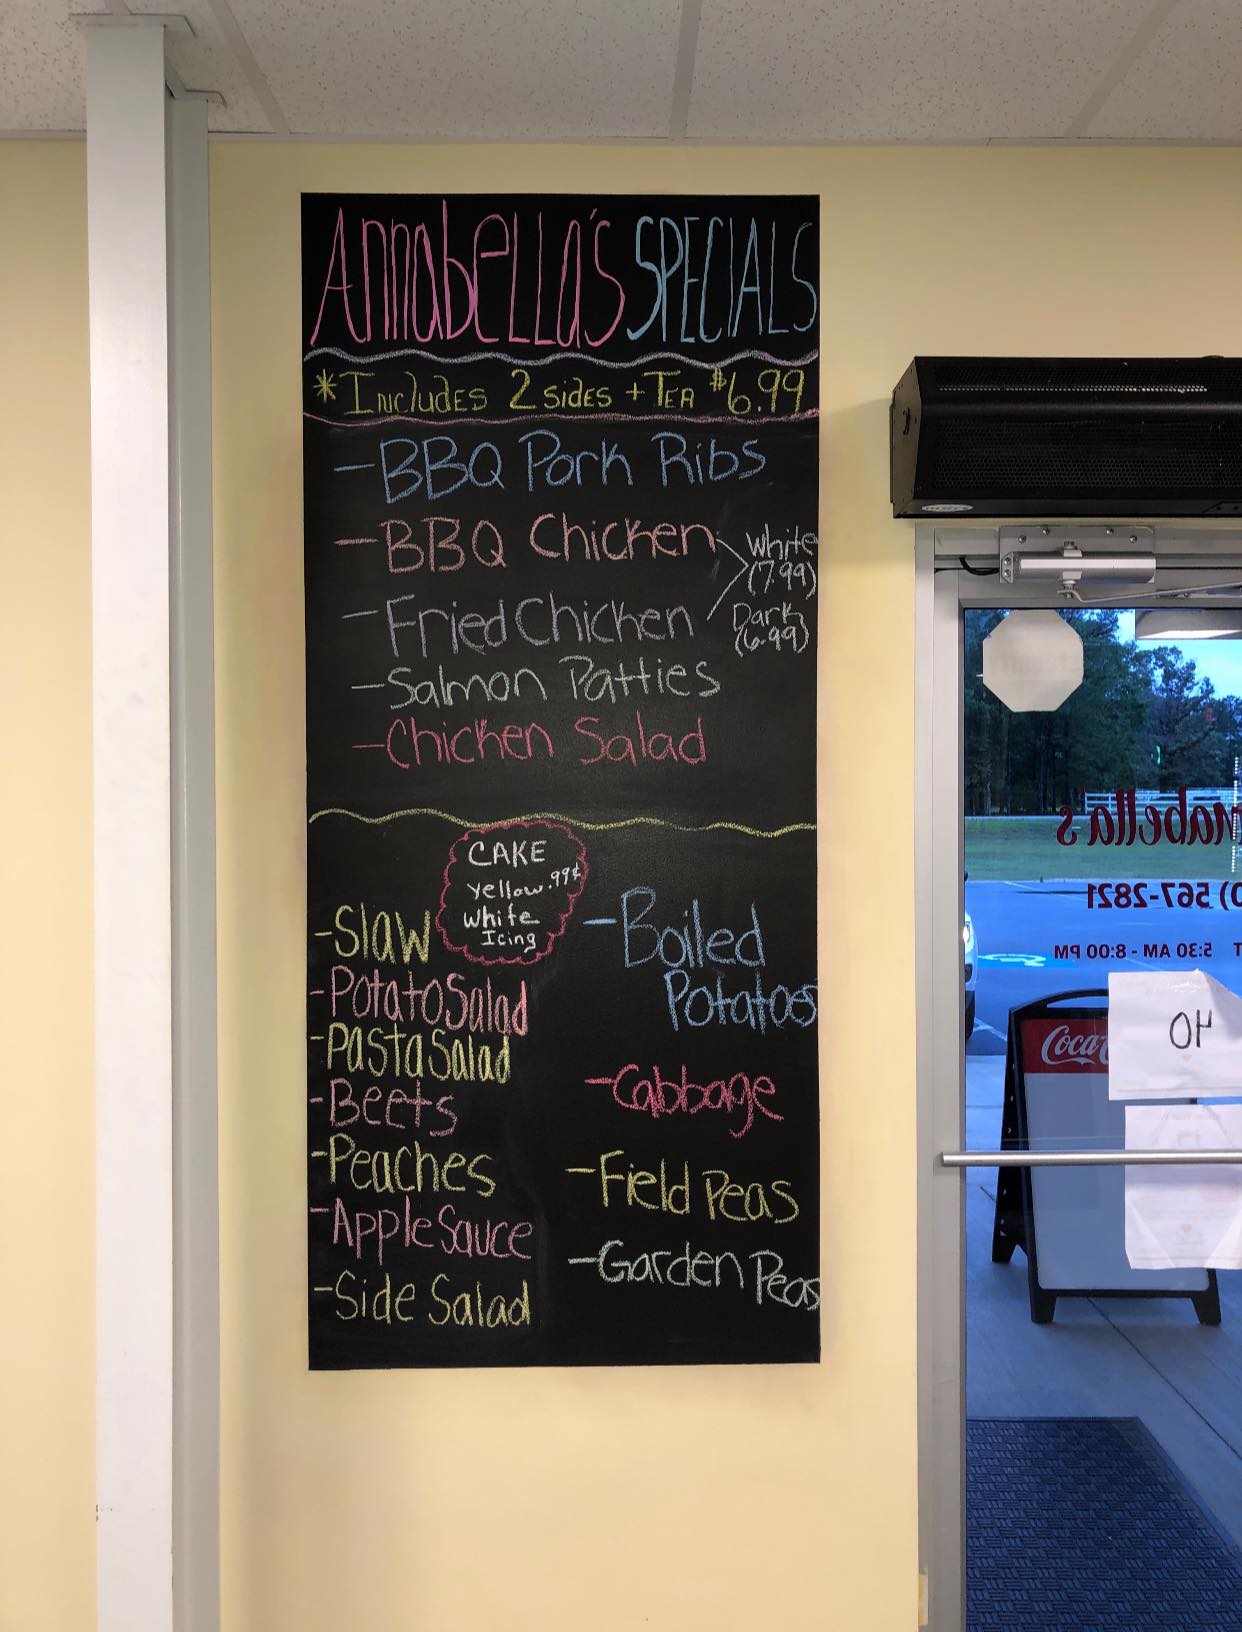 Annabella's SPECIALS
*Includes 2 sides + Tea $6.99
-BBQ Pork Ribs
-BBQ Chicken
-Fried Chicken
White
(7.99)
Dark
(6.99)
-Salmon Patties
-Chicken Salad
CAKE
yellow .99¢
white
Icing
-Slaw
-Potato Salad
-Pasta Salad
-Beets
-Peaches
-Apple Sauce
-Side Salad
-Boiled
Potatoes
-Cabbage
-Field Peas
-Garden Peas
nabella's
0) 567-2821
T 5:30 AM - 8:00 PM
Coca